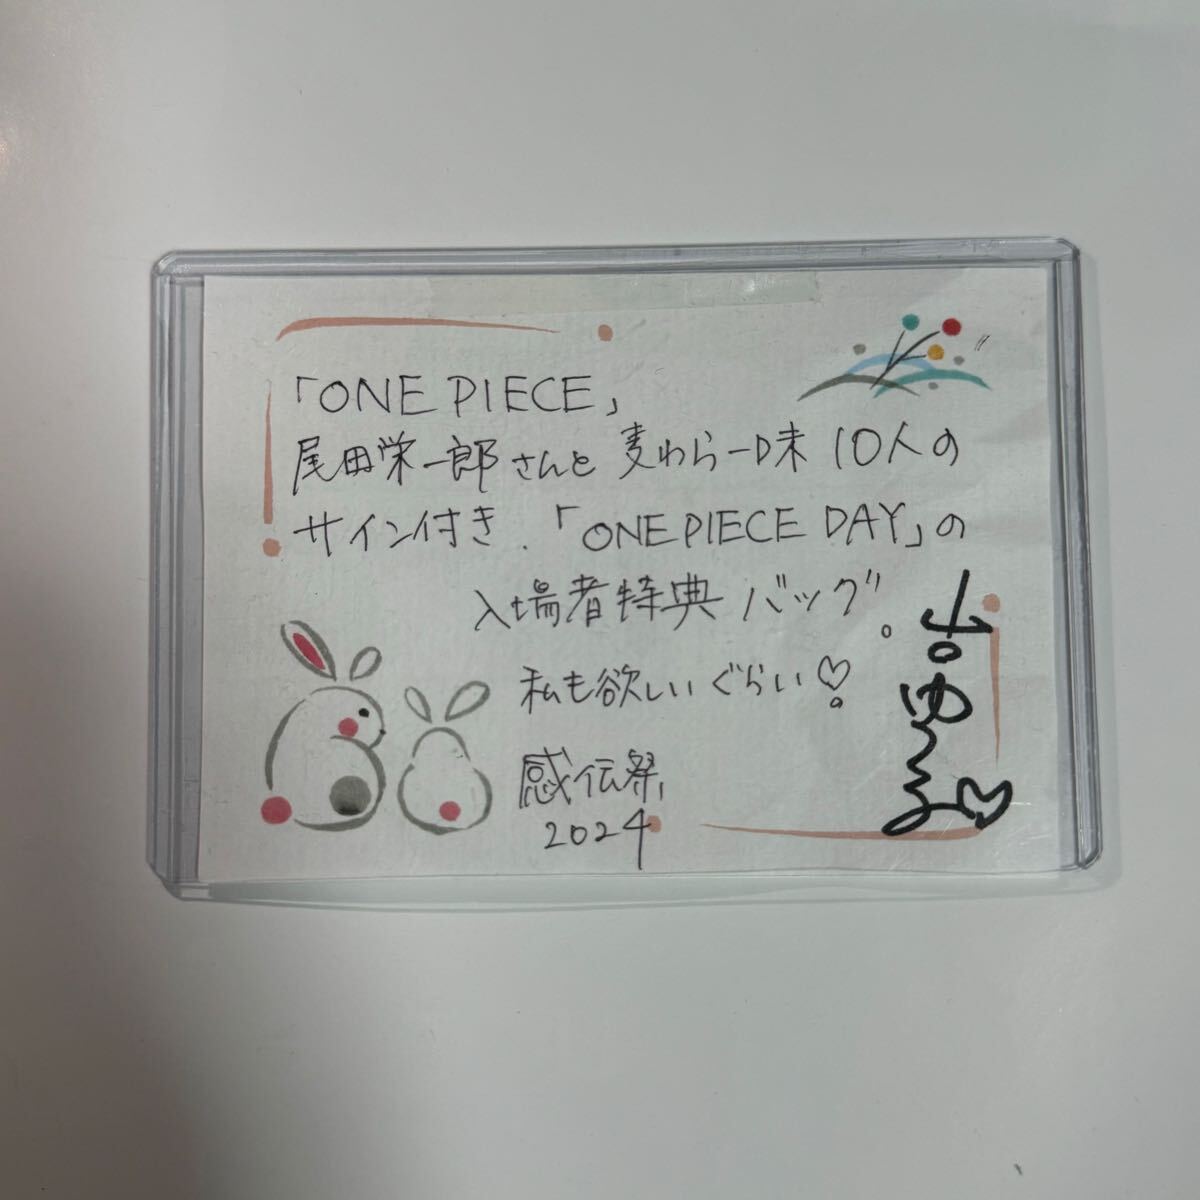 「ONE PIECE」
尾田栄一郎さんと麦わら一味 10人の
サイン付き、「ONE PIECE DAY」の
入場者特典 バッグ。
私も欲しいぐらい♡。
感伝祭
2024